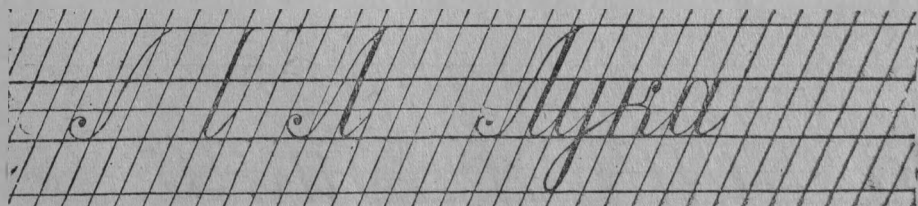 Л Л Лука